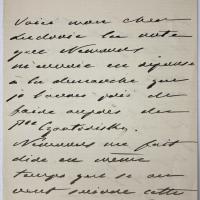 Voici mon cher
Ludovic la note
que Nemours
m'envoie en réponse
à la démarche que
je l'avais prié de
faire auprès du
Pce Czartoriski.
Nemours me fait
dire en même
temps que se on
veut suivre cette